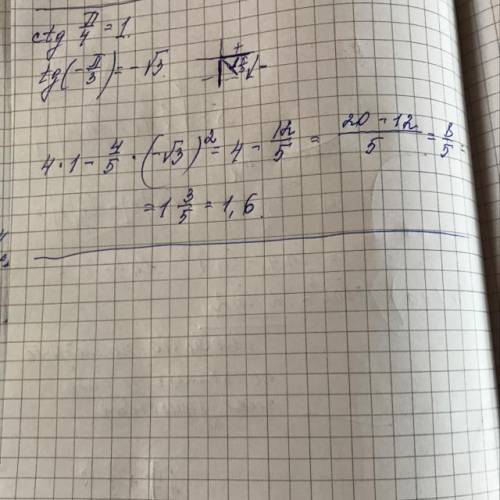 ctg π/4 = 1.
tg(-π/3) = -√3
4 · 1 - 4/5 · (-√3)² = 4 - 12/5 = (20 - 12)/5 = 8/5 =
= 1 3/5 = 1,6.